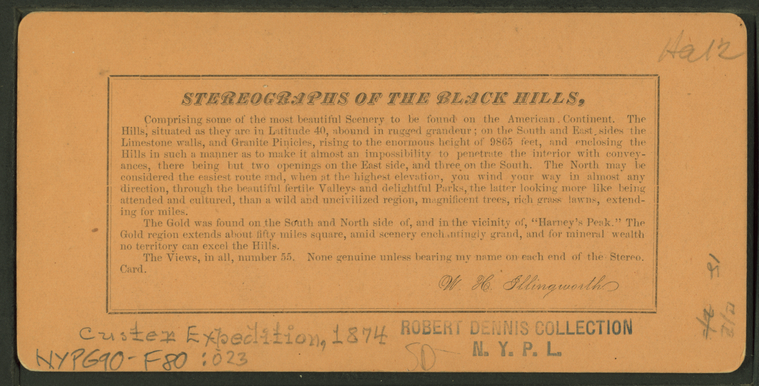 Ha12
STEREOGRAPHS OF THE BLACK HILLS,
Comprising some of the most beautiful Scenery to be found on the American Continent. The
Hills, situated as they are in Latitude 40, abound in rugged grandeur; on the South and East sides the
Limestone walls, and Granite Pinicles, rising to the enormous height of 9865 feet, and enclosing the
Hills in such a manner as to make it almost an impossibility to penetrate the interior with convey-
ances, there being but two openings on the East side, and three on the South. The North may be
considered the easiest route and, when at the highest elevation, you wind your way in almost any
direction, through the beautiful fertile Valleys and delightful Parks, the latter looking more like being
attended and cultured, than a wild and uncivilized region, magnificent trees, rich grass lawns, extend-
ing for miles.
The Gold was found on the South and North side of, and in the vicinity of, "Harney's Peak." The
Gold region extends about fifty miles square, amid scenery enchantingly grand, and for mineral wealth
no territory can excel the Hills.
The Views, in all, number 55. None genuine unless bearing my name on each end of the Stereo.
Card.
W. H. Illingworth
Custer Expedition, 1874
ROBERT DENNIS COLLECTION
N. Y. P. L.
NYPG90-F80 :023
50